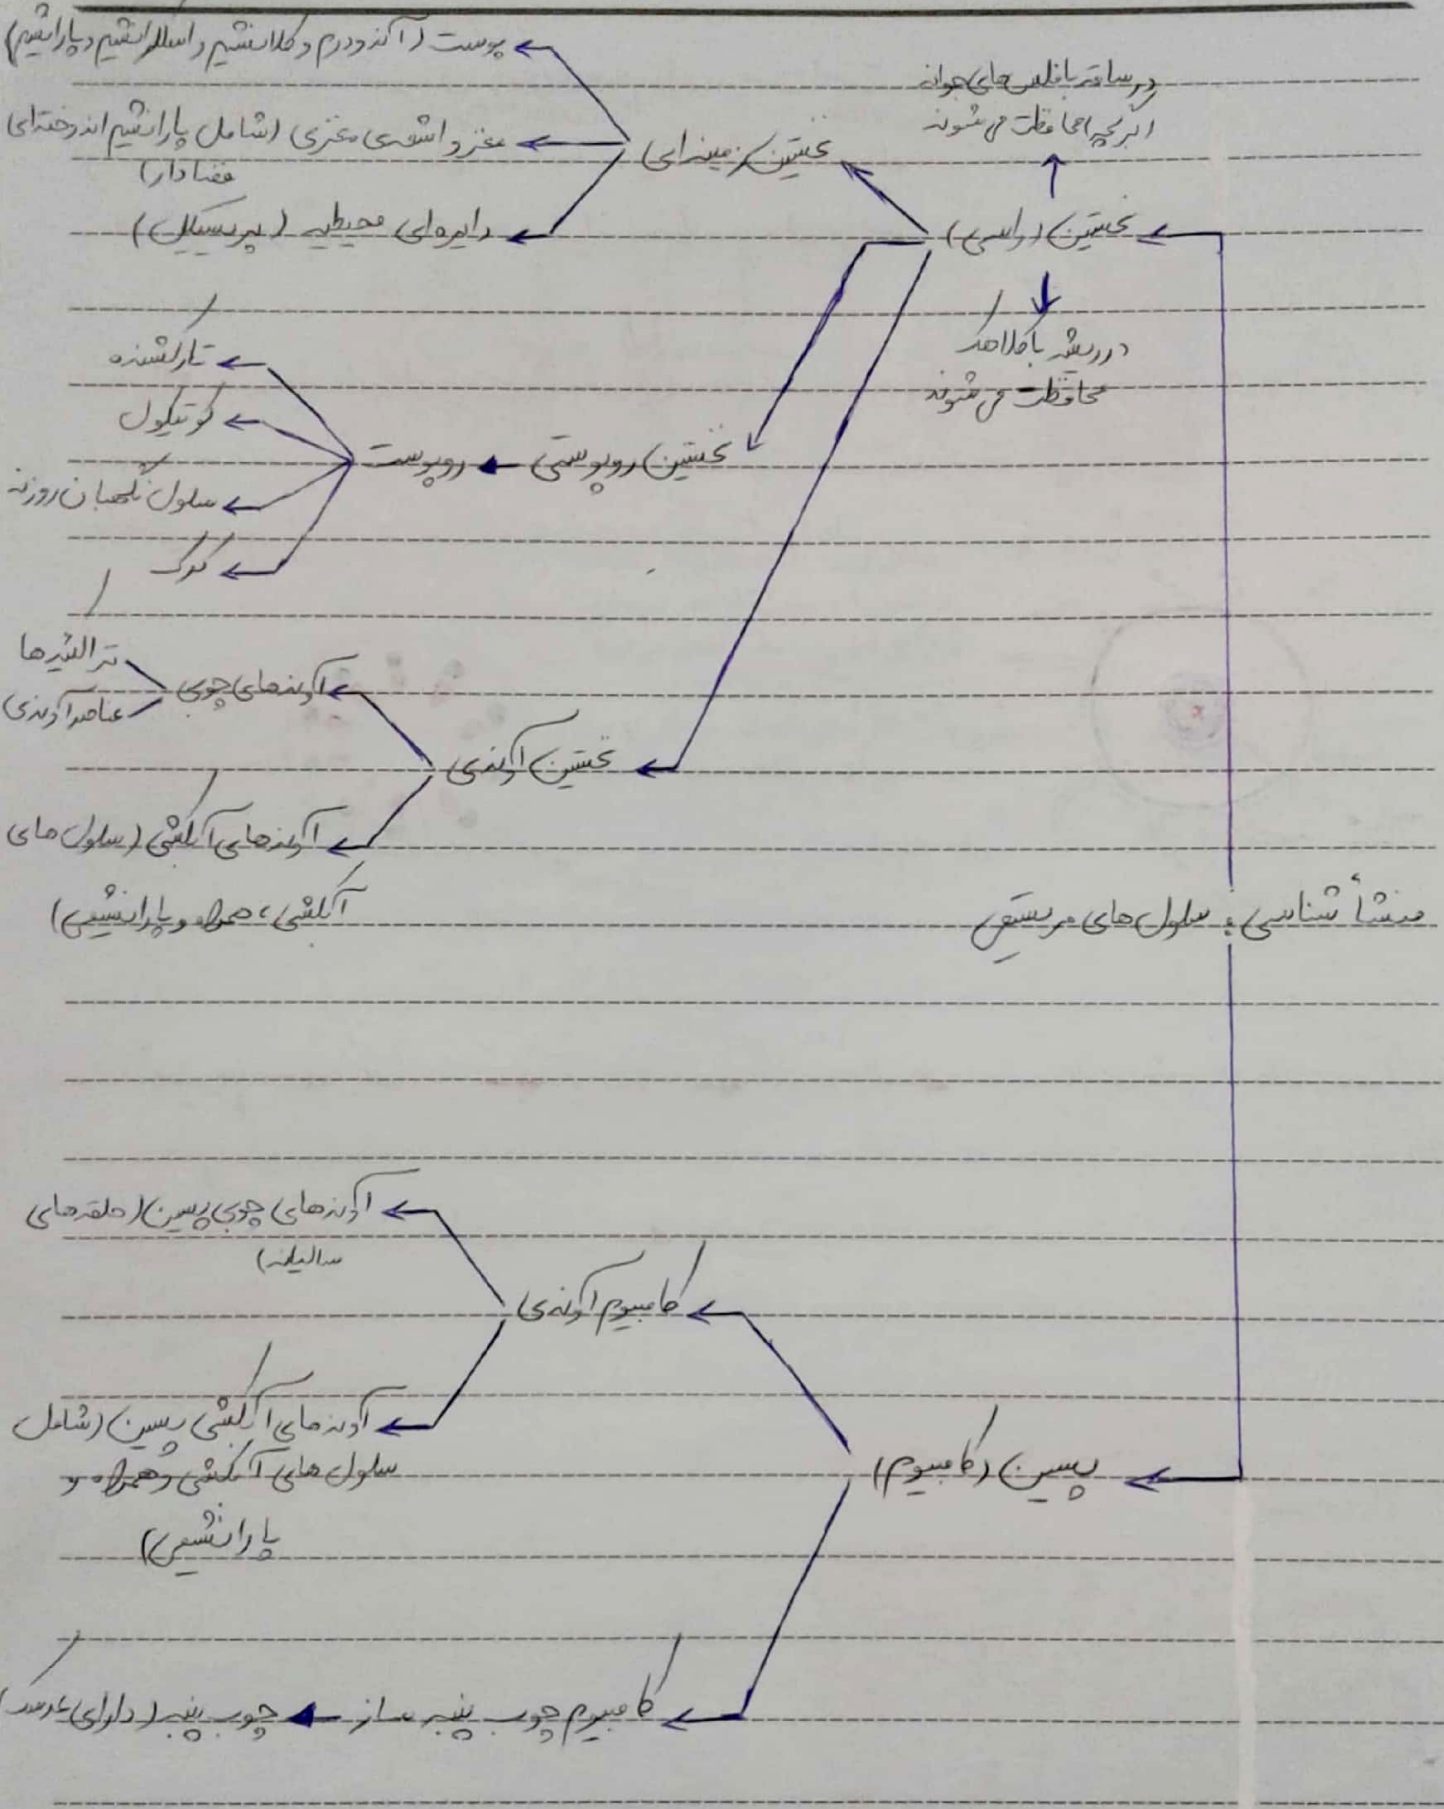 منشأ شناسی : سلول های مریستمی
نخستین (راسی)
در ساقه با فلس های جوانه
(برگچه) محافظت می شوند
در ریشه با کلاهک
محافظت می شوند
نخستین زمینه ای
پوست (آندودرم و کلانشیم و اسکلرانشیم و پارانشیم)
مغز و اشعه ی مغزی (شامل پارانشیم اندوخته ای
فضادار)
دایره ای محیطیه (پریسیکل)
نخستین روپوستی
روپوست
تارکشنده
کوتیکول
سلول نگهبان روزنه
کرک
نخستین آوندی
آوندهای چوبی
تراکئیدها
عناصر آوندی
آوندهای آبکشی (سلول های
آبکشی، همراه و پارانشیمی)
پسین (کامبیوم)
کامبیوم آوندی
آوندهای چوبی پسین (حلقه های
سالیانه)
آوندهای آبکشی پسین (شامل
سلول های آبکشی و همراه و
پارانشیمی)
کامبیوم چوب پنبه ساز
چوب پنبه (دارای عدسک)